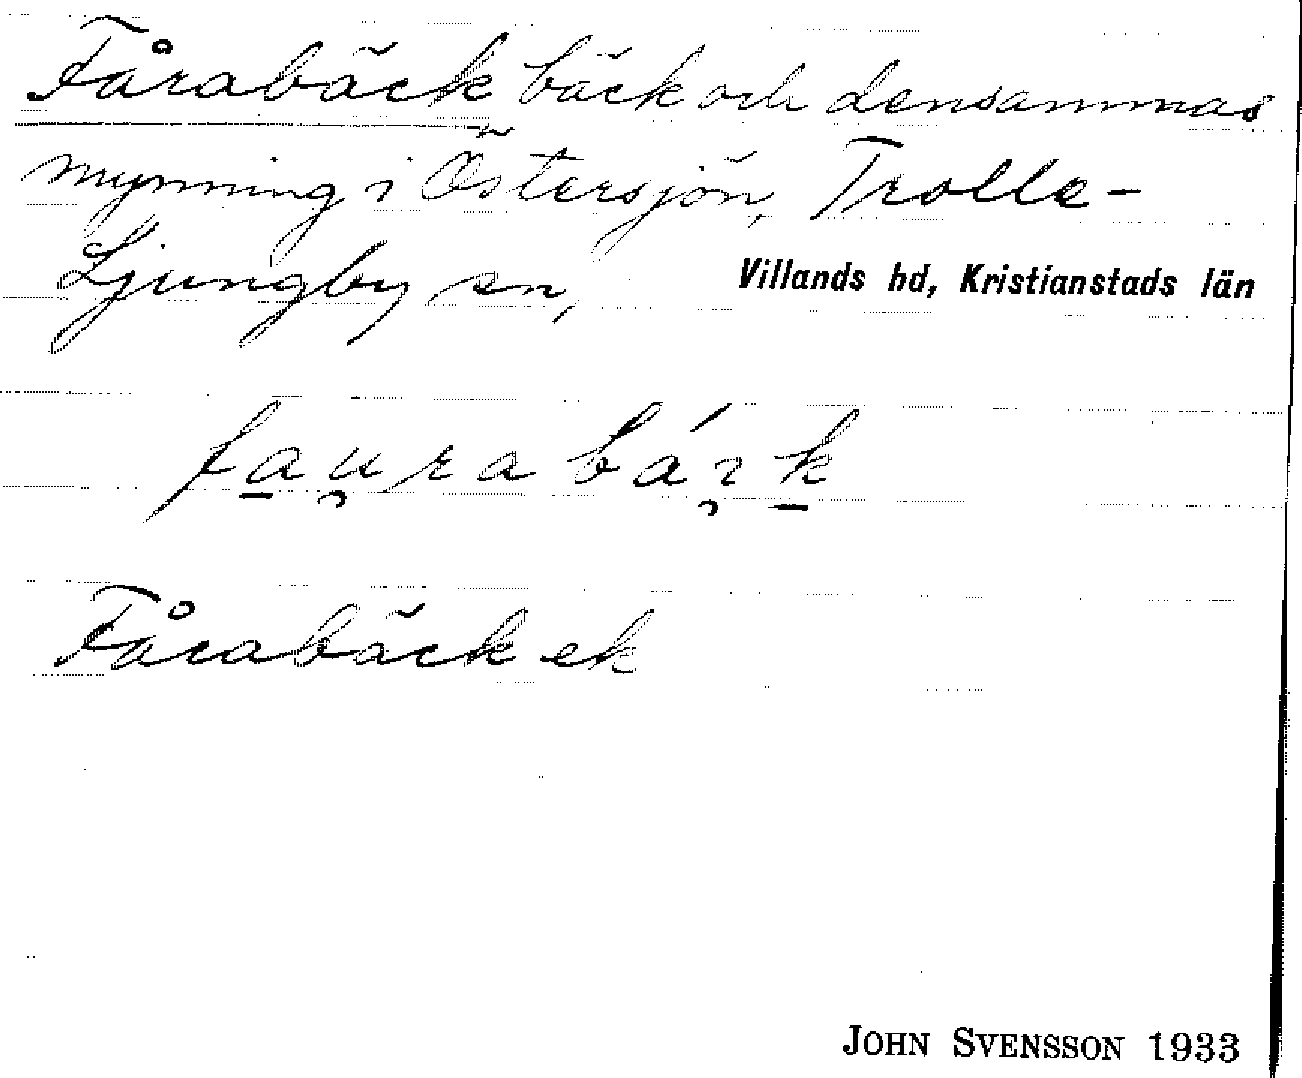 Fårabäck bäck och densammas
mynning i Östersjön, Trolle-
Ljungby sn, Villands hd, Kristianstads län
Fårabäck ek
JOHN SVENSSON 1933